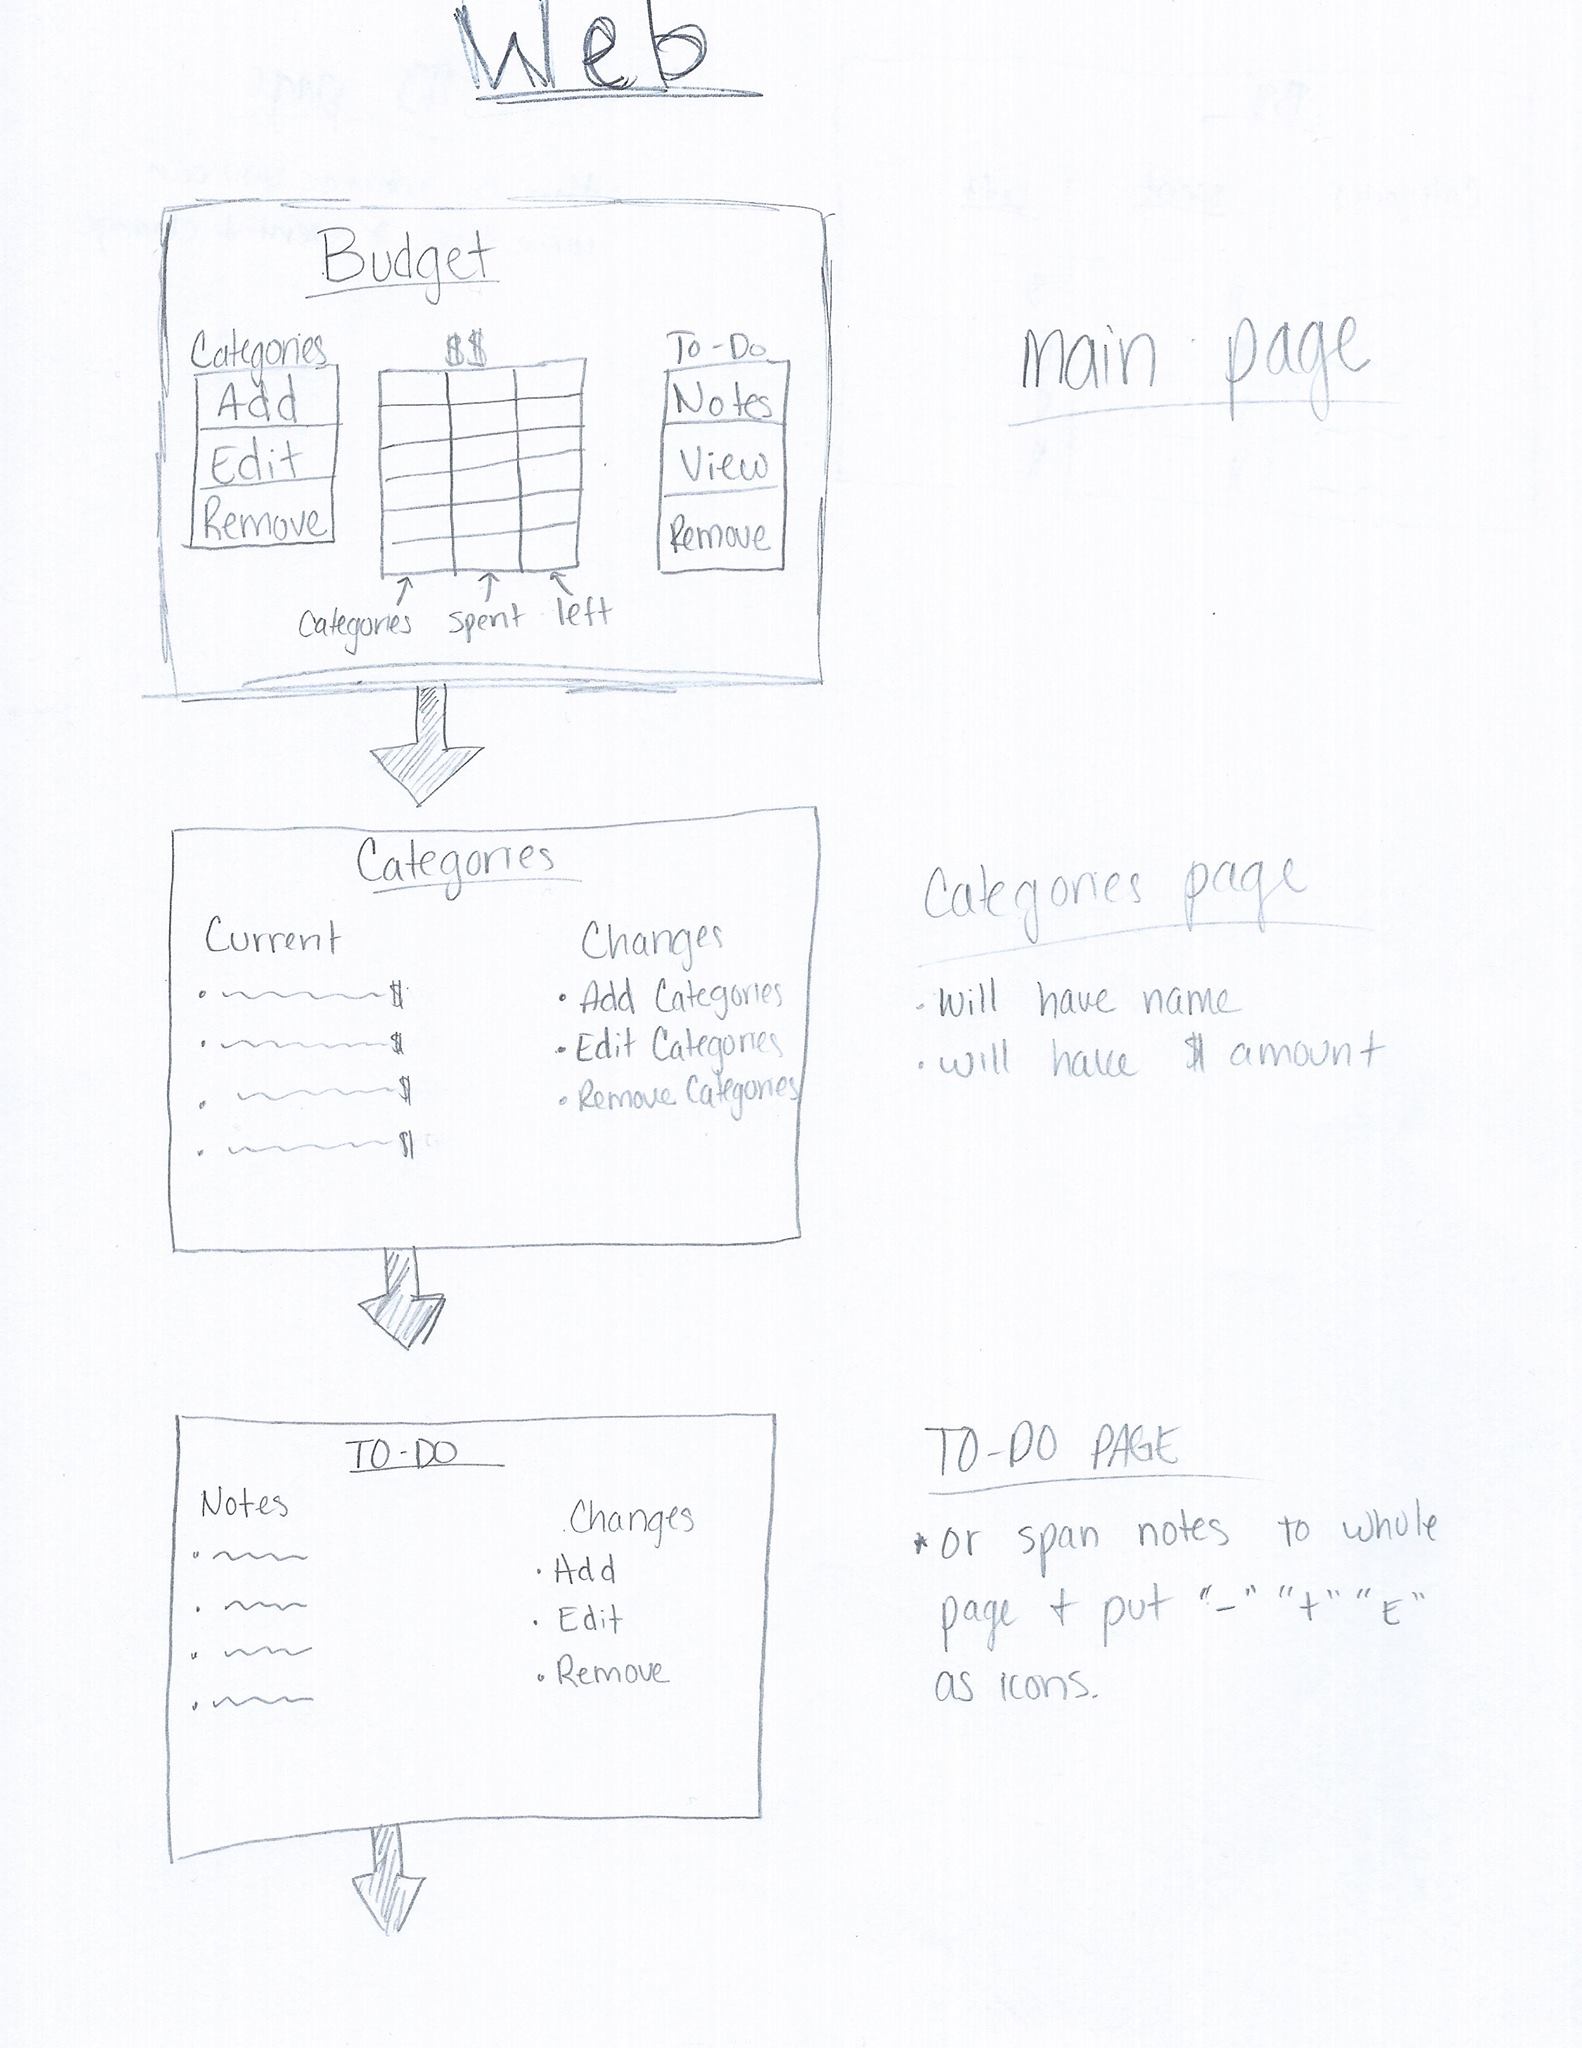 Web
Budget
Categories
Add
Edit
Remove
$$
To-Do
Notes
View
Remove
Categories spent left
main page
Categories
Current
• $
• $
• $
• $
Changes
• Add Categories
• Edit Categories
• Remove Categories
Categories page
• will have name
• will have $ amount
TO-DO
Notes
Changes
• Add
• Edit
• Remove
TO-DO PAGE
* or span notes to whole
page + put "-" "+" "E"
as icons.